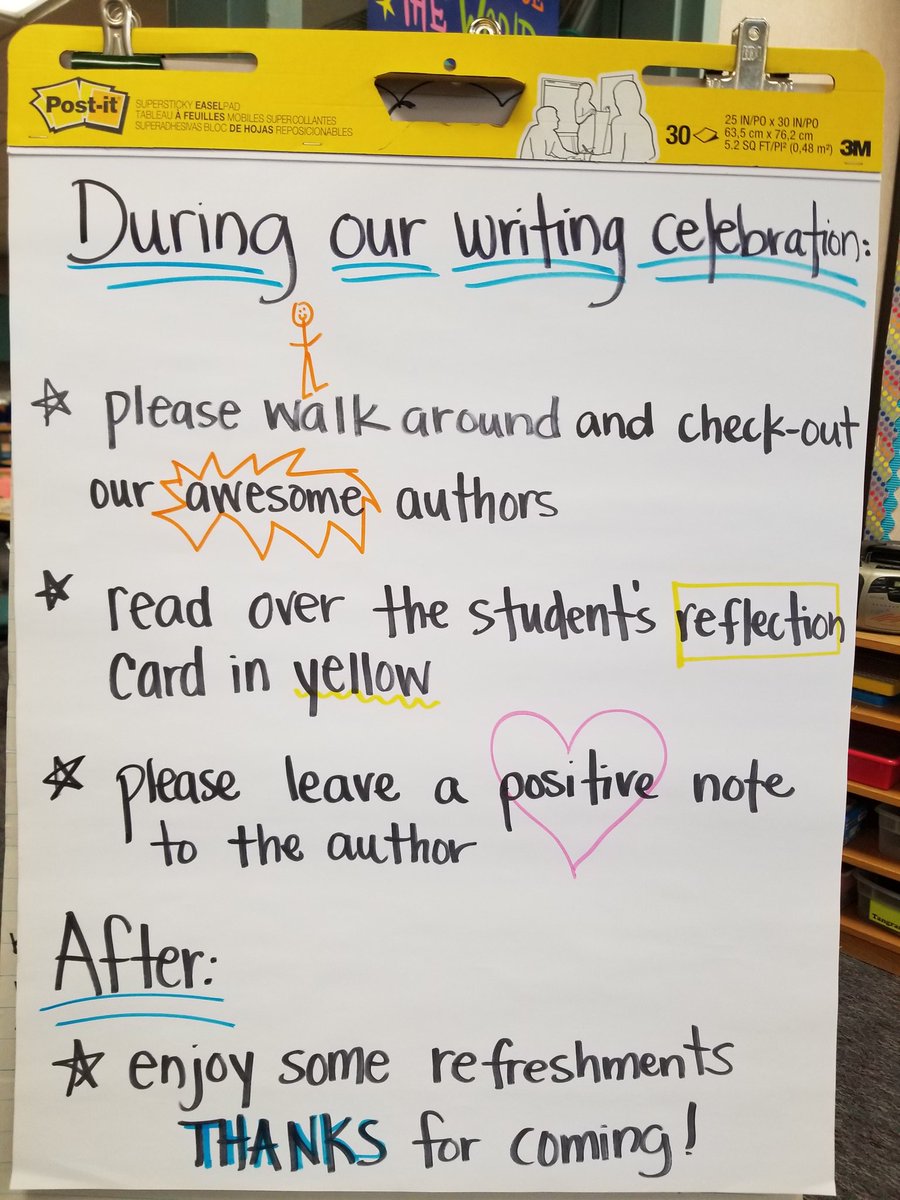 THE WORLD
Post-it
SUPERSTICKY EASELPAD
TABLEAU À FEUILLES MOBILES SUPER COLLANTES
SUPERADHESIVAS BLOC DE HOJAS REPOSICIONABLES
30
25 IN/PO x 30 IN/PO
63,5 cm x 76,2 cm
5.2 SQ FT/PI² (0,48 m²)
3M
During our writing celebration:
please walk around and check-out
our awesome authors
read over the student's reflection
card in yellow
please leave a positive note
to the author
After:
enjoy some refreshments
THANKS for coming!